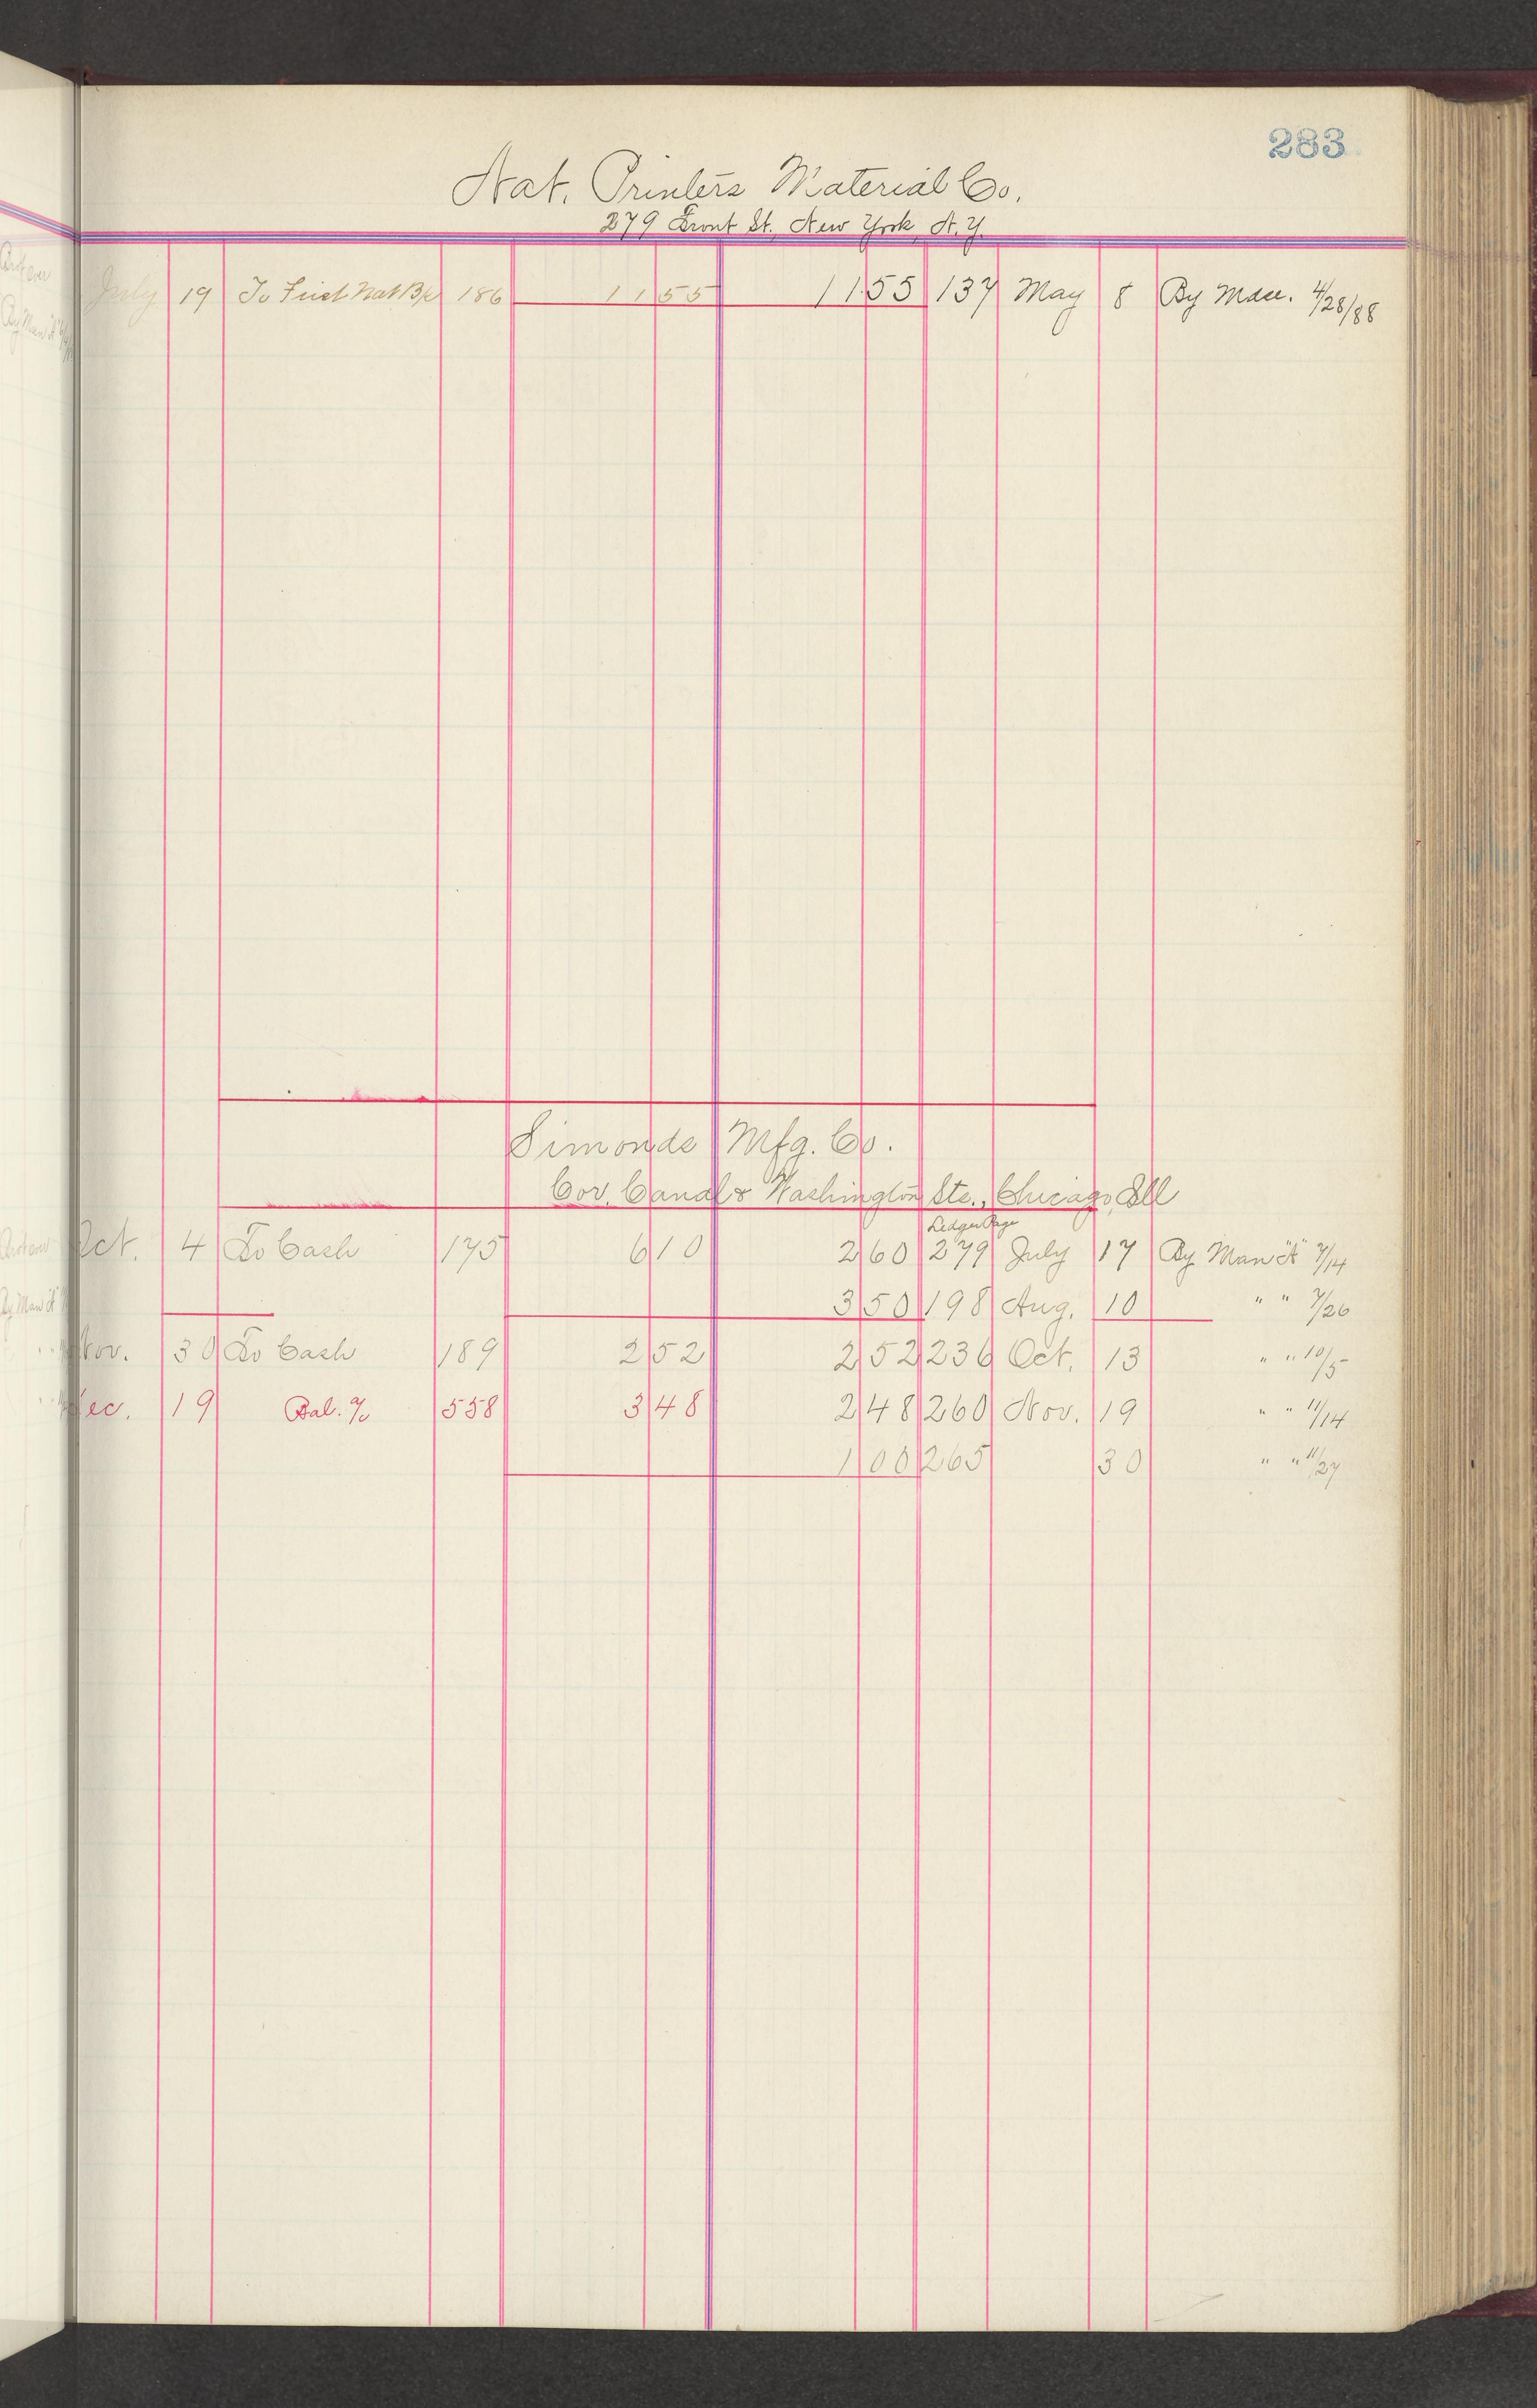 283
Nat. Printers Material Co.
279 Front St. New York, N.Y.
July 19 To First Nat Bk 186 11 55 11.55 137 May 8 By Mdse. 4/28/88
Simonds Mfg. Co.
Cor. Canal & Washington Sts., Chicago, Ill
Ledger Page
Oct. 4 To Cash 175 6 10 2 60 279 July 17 By Man "A" 7/14
3 50 198 Aug. 10 " " 7/26
Nov. 30 To Cash 189 2 52 2 52 236 Oct. 13 " " 10/5
Dec. 19 Bal. % 558 3 48 2 48 260 Nov. 19 " " 11/14
1 00 265 30 " " 11/27